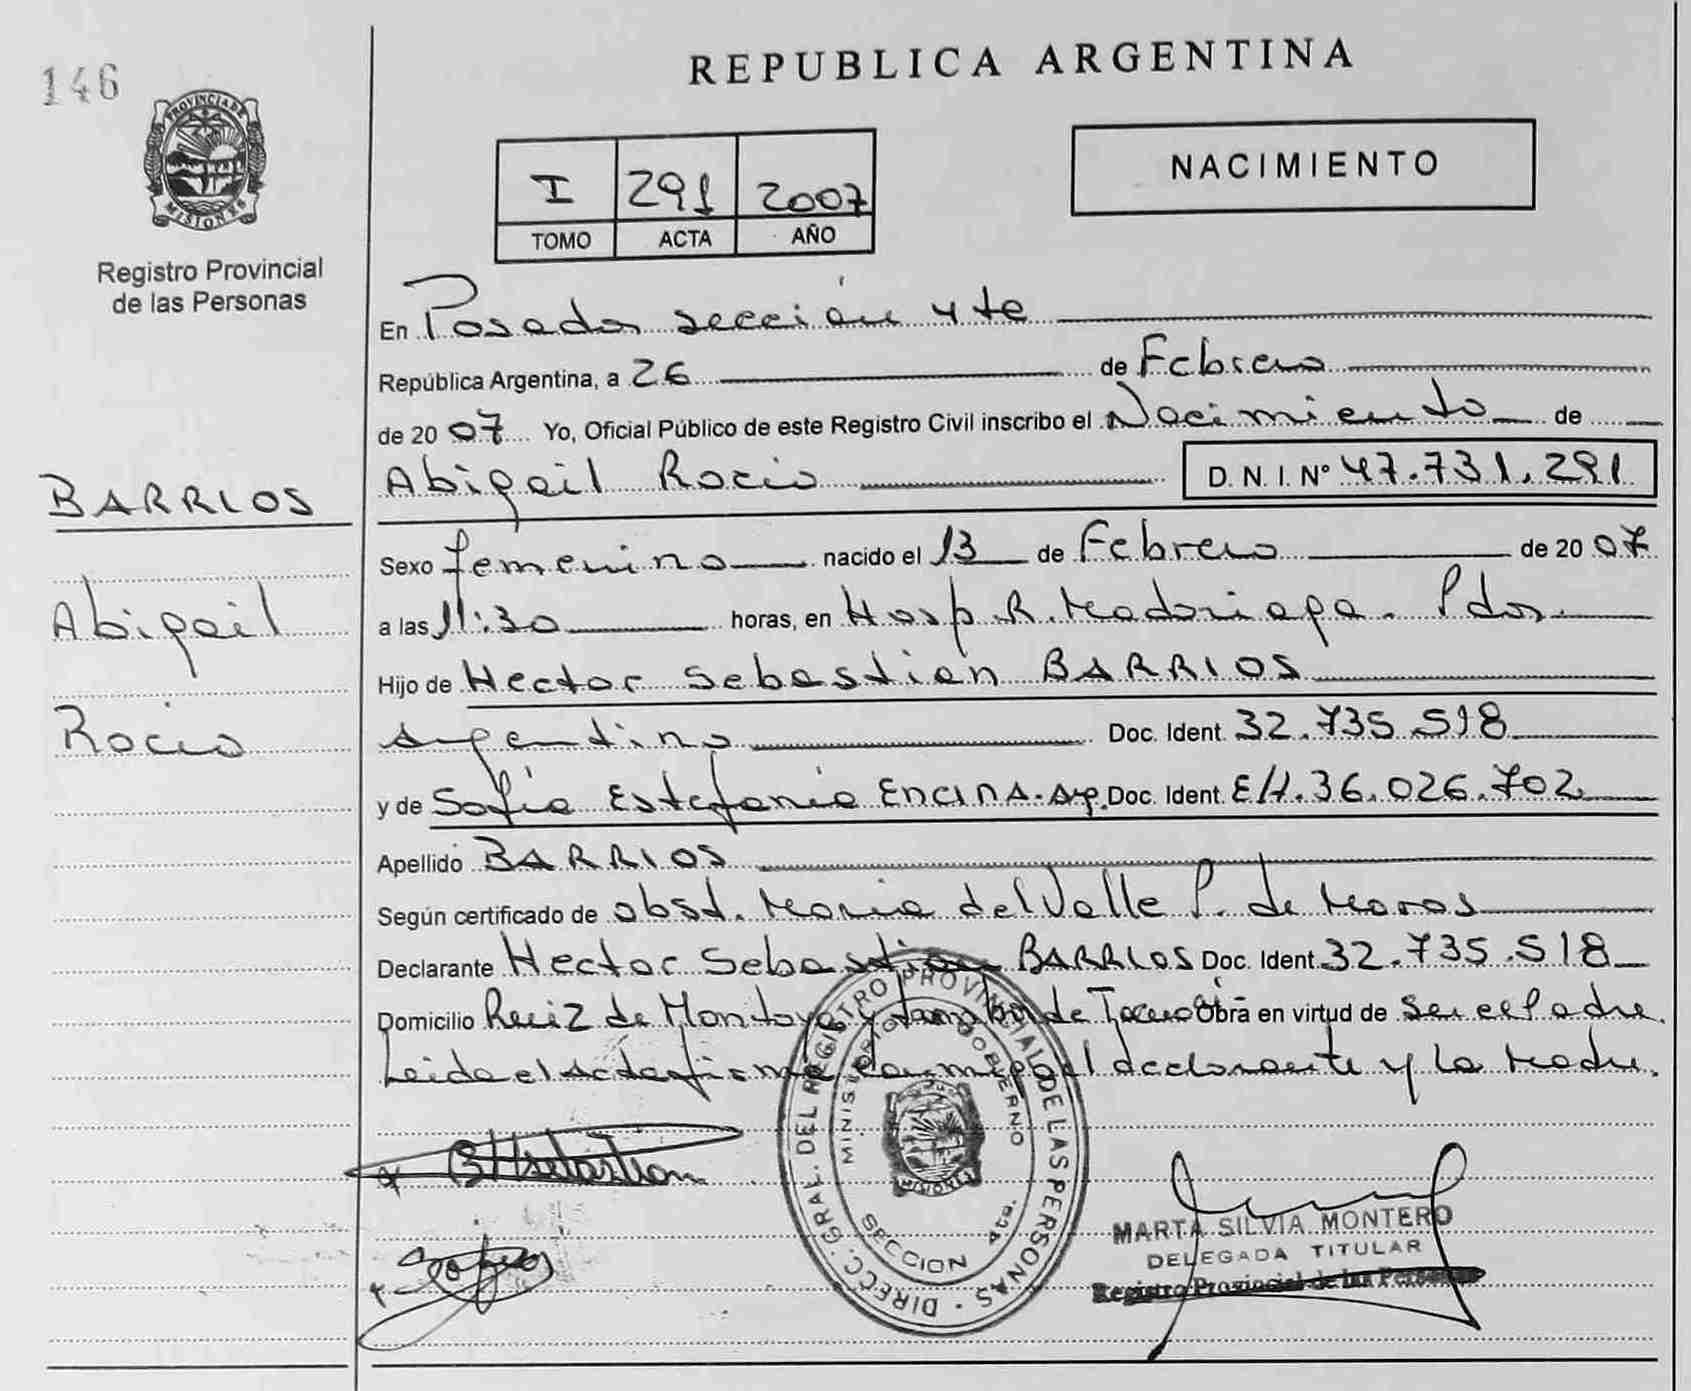 146
PROVINCIA DE
MISIONES
Registro Provincial
de las Personas
REPUBLICA ARGENTINA
I 291 2007
TOMO ACTA AÑO
NACIMIENTO
En Posadas sección 4ta
República Argentina, a 26 de Febrero
de 2007 Yo, Oficial Público de este Registro Civil inscribo el Nacimiento de
Abigail Rocio D. N. I. Nº 47.731.291
BARRIOS
Abigail
Rocio
Sexo femenino nacido el 13 de Febrero de 2007
a las 11:30 horas, en Hosp. R. Madariaga. Pdas.
Hijo de Hector Sebastian BARRIOS
argentino Doc. Ident. 32.735.518
y de Sofia Estefania ENCINA. arg. Doc. Ident. E/t. 36.026.702
Apellido BARRIOS
Según certificado de obst. Maria del Valle P. de Moras
Declarante Hector Sebastian BARRIOS Doc. Ident. 32.735.518
Domicilio Ruiz de Montoya y de Obra en virtud de ser el Padre.
Leida el Acta firma conmigo el declarante y la Madre.
DIRECC. GRAL. DEL REGISTRO PROVINCIAL DE LAS PERSONAS
MINISTERIO DE GOBIERNO
MISIONES
SECCION 4ta.
BHSebastian
Sofia
MARTA SILVIA MONTERO
DELEGADA TITULAR
Registro Provincial de las Personas